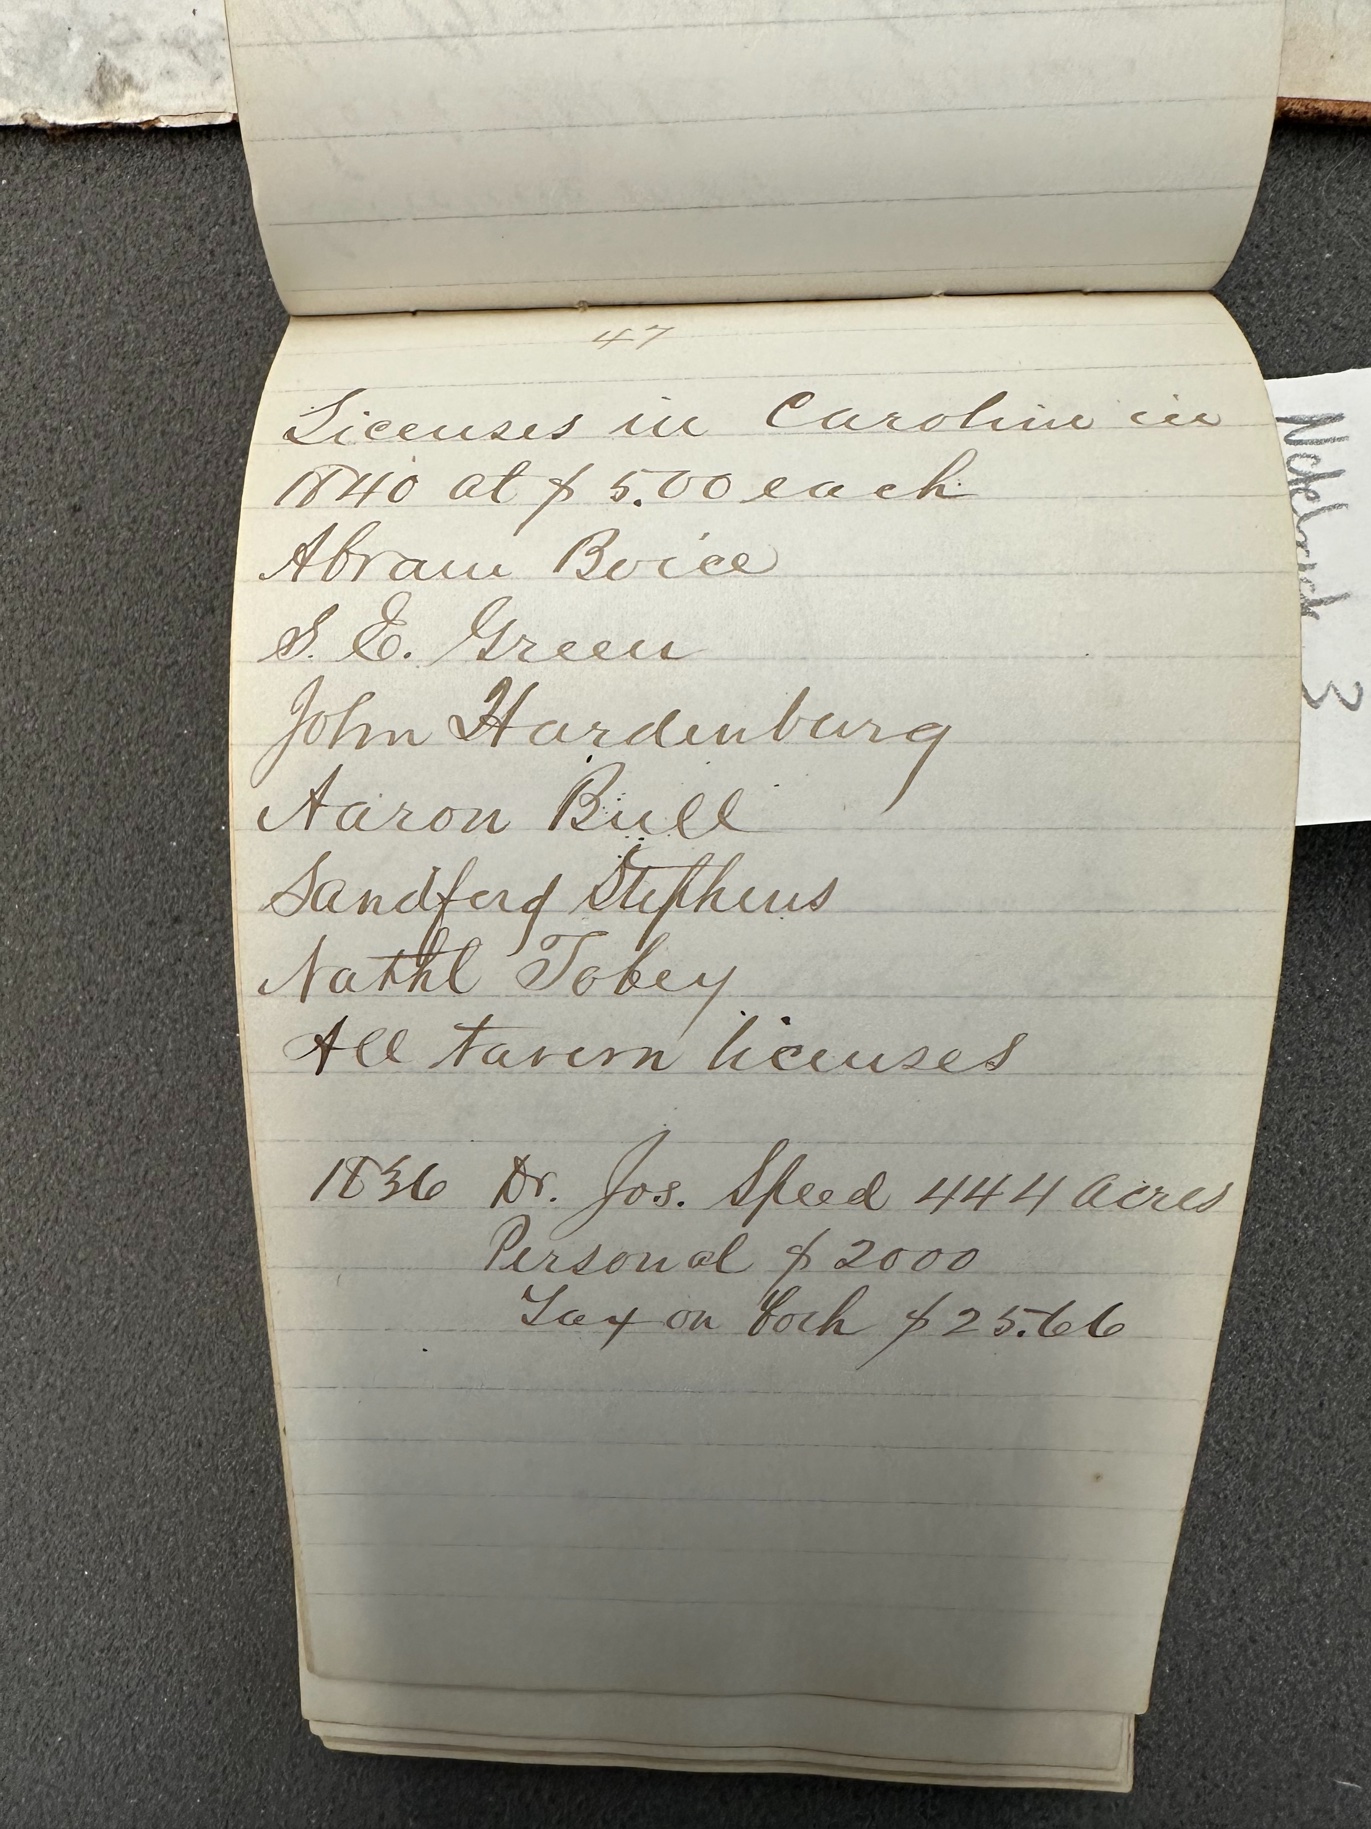 47
Licenses in Caroline in
1840 at $5.00 each
Abram Boice
S. E. Green
John Hardenburg
Aaron Bull
Sandford Stephens
Nathl Tobey
All tavern licenses
1836 Dr. Jos. Speed 444 acres
Personal $2000
Tax on both $25.66
3